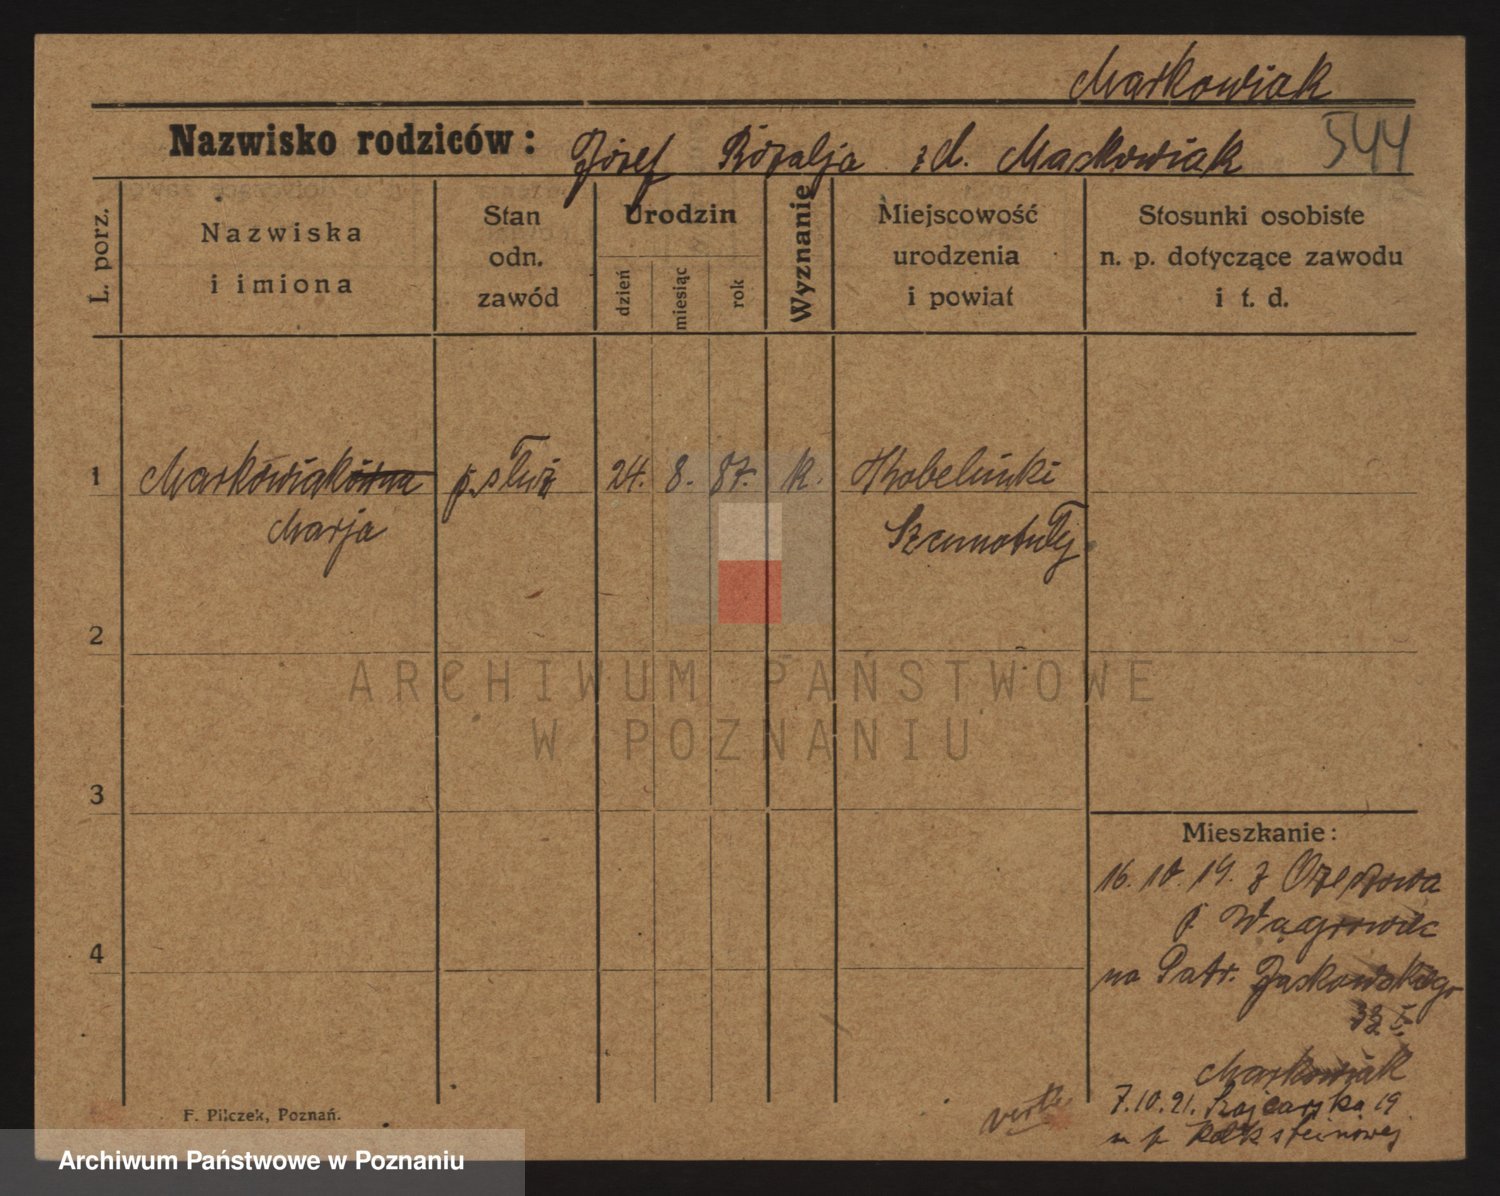 Markowiak
Nazwisko rodziców: Józef Rózalja zd. Markowiak 544
L. porz.
Nazwiska
i imiona
Stan
odn.
zawód
Urodzin
dzień
miesiąc
rok
Wyznanie
Miejscowość
urodzenia
i powiat
Stosunki osobiste
n. p. dotyczące zawodu
i t. d.
1 Markowiakówna p. służ 24. 8. 87. k.
Marja Szamotuły
2
3
4
Mieszkanie:
16. 10. 19. z
p. Wągrowiec
na Patr. Jaskowskiego
Markowiak
7.10.21. 19
F. Pilczek, Poznań.
ARCHIWUM PAŃSTWOWE
W POZNANIU
Archiwum Państwowe w Poznaniu